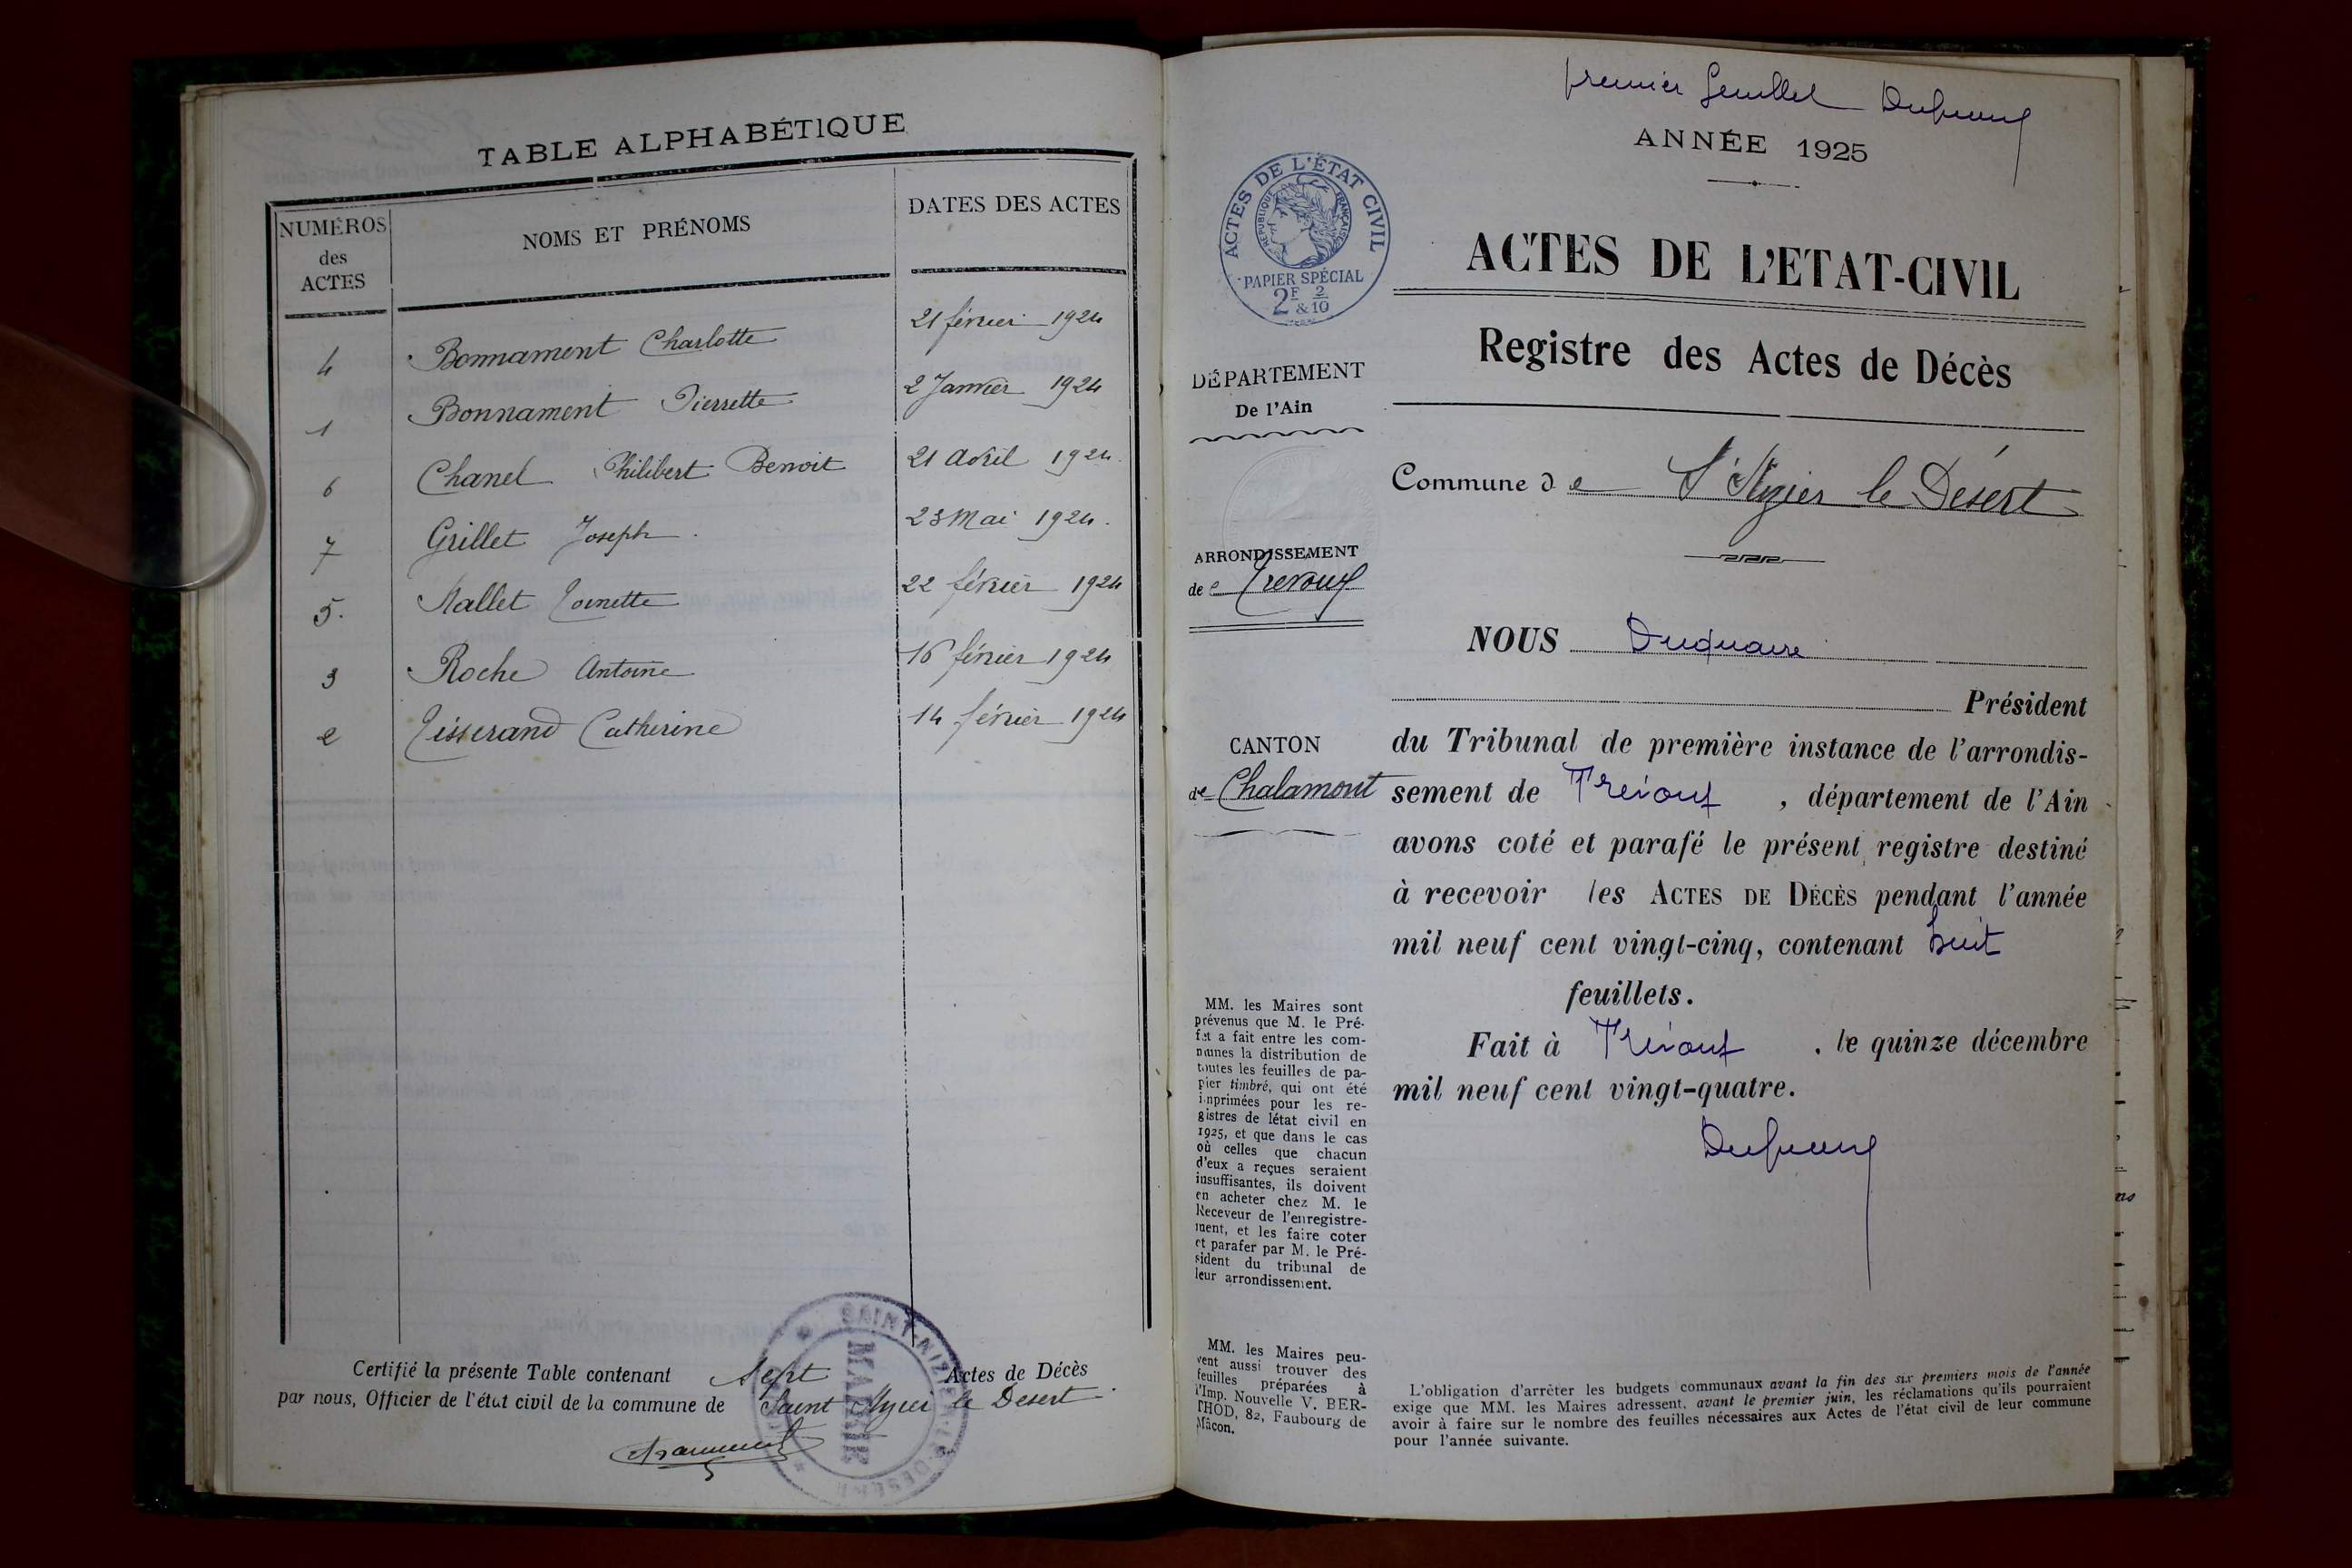 TABLE ALPHABÉTIQUE
NUMÉROS
des
ACTES
NOMS ET PRÉNOMS
DATES DES ACTES
4 Bonnament Charlotte 21 février 1924
1 Bonnament Pierrette 2 Janvier 1924
6 Chanel Philibert Benoit 21 Avril 1924.
7 Grillet Joseph. 23 Mai 1924.
5. Mallet Toinette 22 février 1924
3 Roche Antoine 16 février 1924
2 Tisserand Catherine 14 février 1924
Certifié la présente Table contenant Sept Actes de Décès
par nous, Officier de l'état civil de la commune de Saint Nizier le Desert.
SAINT-NIZIER-LE-DESERT
MAIRIE
premier feuillet
ANNÉE 1925
ACTES DE L'ÉTAT CIVIL
RÉPUBLIQUE FRANÇAISE
PAPIER SPÉCIAL
2F & 2/10
ACTES DE L'ETAT-CIVIL
Registre des Actes de Décès
DÉPARTEMENT
De l'Ain
Commune de St Nizier le Désert
ARRONDISSEMENT
de Trévoux
CANTON
de Chalamont
NOUS Duquaire
Président
du Tribunal de première instance de l'arrondis-
sement de Trévoux , département de l'Ain
avons coté et parafé le présent registre destiné
à recevoir les ACTES DE DÉCÈS pendant l'année
mil neuf cent vingt-cinq, contenant huit
feuillets.
Fait à Trévoux , le quinze décembre
mil neuf cent vingt-quatre.
MM. les Maires sont
prévenus que M. le Pré-
fet a fait entre les com-
munes la distribution de
toutes les feuilles de pa-
pier timbré, qui ont été
imprimées pour les re-
gistres de létat civil en
1925, et que dans le cas
où celles que chacun
d'eux a reçues seraient
insuffisantes, ils doivent
en acheter chez M. le
Receveur de l'enregistre-
ment, et les faire coter
et parafer par M. le Pré-
sident du tribunal de
leur arrondissement.
MM. les Maires peu-
vent aussi trouver des
feuilles préparées à
l'Imp. Nouvelle V. BER-
THOD, 82, Faubourg de
Mâcon.
L'obligation d'arrèter les budgets communaux avant la fin des six premiers mois de l'année
exige que MM. les Maires adressent, avant le premier juin, les réclamations qu'ils pourraient
avoir à faire sur le nombre des feuilles nécessaires aux Actes de l'état civil de leur commune
pour l'année suivante.